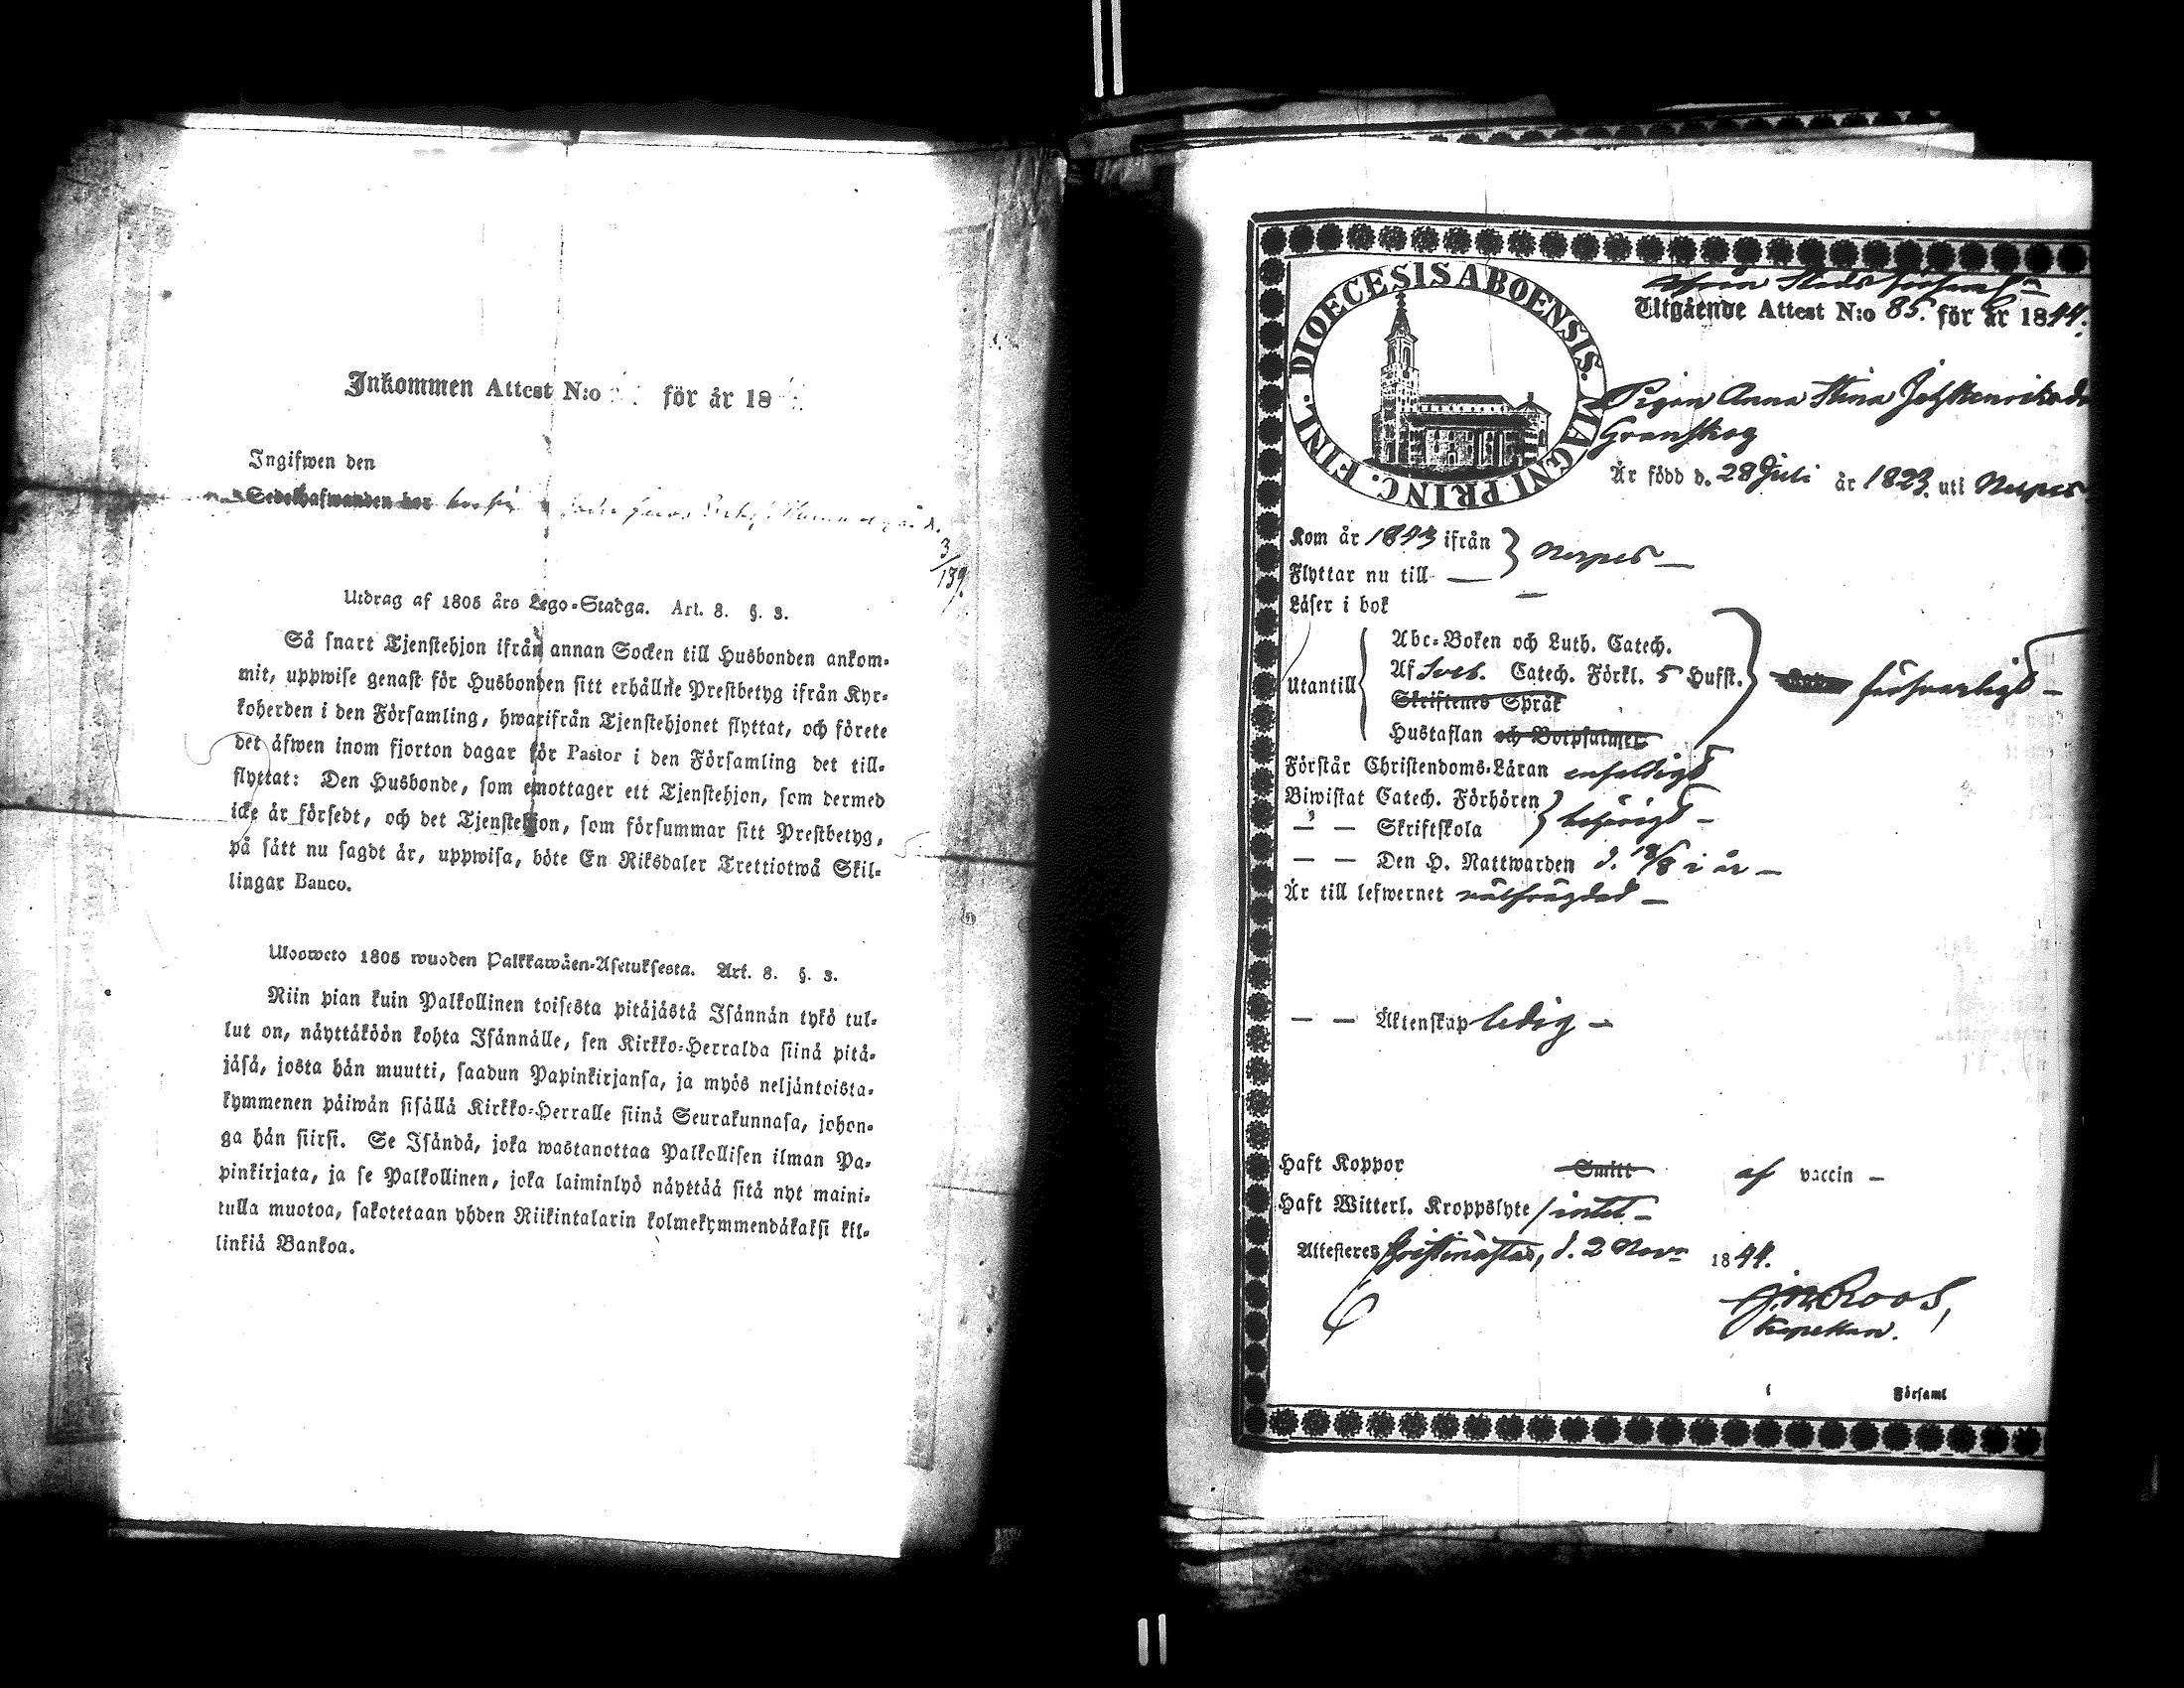 Inkommen Attest N:o för år 18
Ingifwen den
Sedelhafwanden har
3/139.
Utdrag af 1805 års Lego-Stadga. Art. 8. §. 3.
Så snart Tjenstehjon ifrån annan Socken till Husbonden ankom-
mit, uppwise genast för Husbonden sitt erhållne Prestbetyg ifrån Kyr-
koherden i den Församling, hwarifrån Tjenstehjonet flyttat, och förete
det äfwen inom fjorton dagar för Pastor i den Församling det till-
flyttat: Den Husbonde, som emottager ett Tjenstehjon, som dermed
icke är försedt, och det Tjenstehjon, som försummar sitt Prestbetyg,
på sätt nu sagdt är, uppwisa, böte En Riksdaler Trettiotwå Skil-
lingar Banco.
Ulosweto 1805 wuoden Palkkawäen-Asetuksesta. Art. 8. §. 3.
Niin pian kuin Palkollinen toisesta pitäjästä Isännän tykö tul-
lut on, näyttäköön kohta Isännälle, sen Kirkko-Herralda siinä pitä-
jäsä, josta hän muutti, saadun Papinkirjansa, ja myös neljäntoista-
kymmenen päiwän sisällä Kirkko-Herralle siinä Seurakunnasa, johon-
ga hän siirsi. Se Isändä, joka wastanottaa Palkollisen ilman Pa-
pinkirjata, ja se Palkollinen, joka laiminlyö näyttää sitä nyt maini-
tulla muotoa, sakotetaan yhden Riikintalarin kolmekymmendäkaksi kil-
linkiä Bankoa.
DIOECESIS ABOENSIS. MAGNI PRINC. FINL.
Utgående Attest N:o 85. för år 1844.
Pigan Anna Stina
Granskog
Är född d. 28 Juli år 1823. uti Nerpes
Kom år 1843 ifrån } Nerpes —
Flyttar nu till —
Läser i bok —
Abc-Boken och Luth. Catech.
Utantill Af Sveb. Catech. Förkl. 5 Hufst. försvarligt —
Skriftenes Språk
Hustaflan och Botpsalmer
Förstår Christendoms-Läran enfaldigt
Biwistat Catech. Förhören } behörigt —
— — Skriftskola
— — Den H. Nattwarden d. 18/8 i år —
Är till lefwernet välfrägdad —
— — Äktenskap ledig —
Haft Koppor Smitt af vaccin —
Haft Witterl. Kroppslyte / intet —
Attesteres Christinæstad, d. 2 Nov. 1844.
Roos,
Kapellan.
i Församl